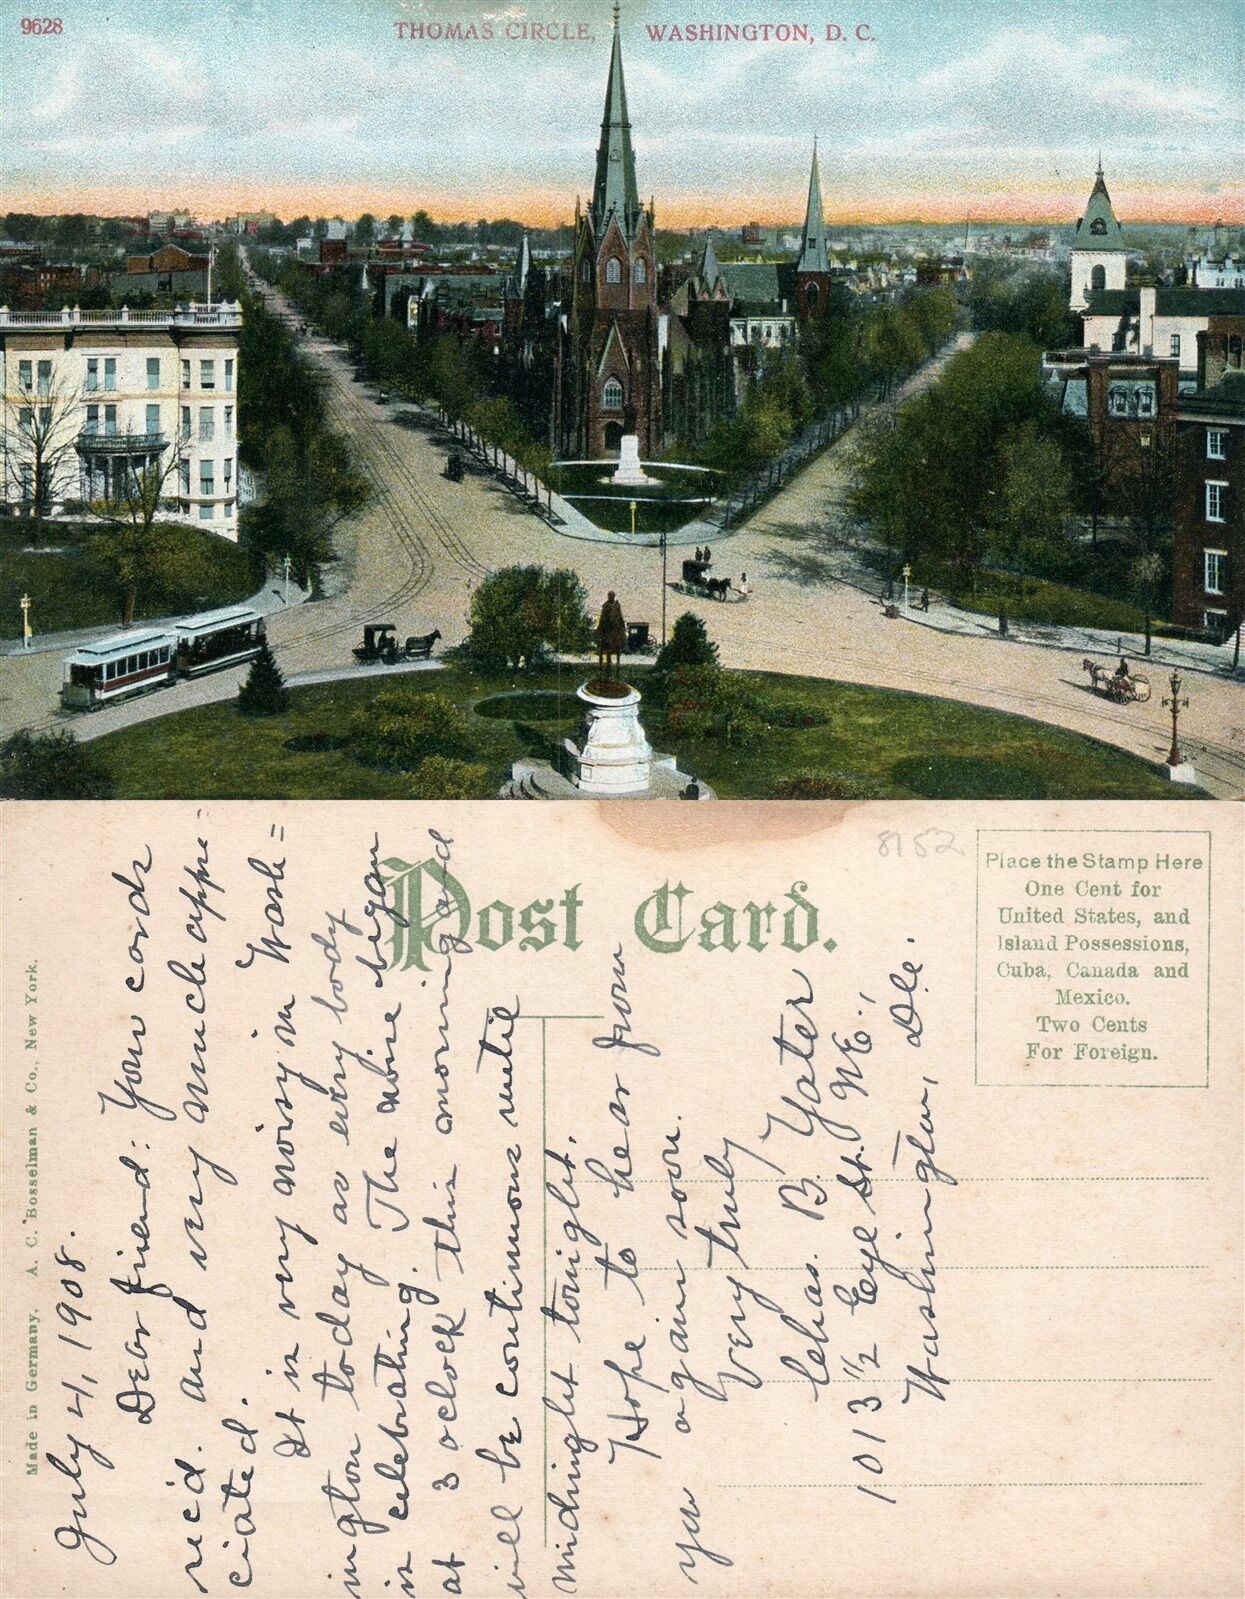 9628
THOMAS CIRCLE, WASHINGTON, D. C.
8152
Post Card.
Place the Stamp Here
One Cent for
United States, and
Island Possessions,
Cuba, Canada and
Mexico.
Two Cents
For Foreign.
Made in Germany, A. C. Bosselman & Co., New York.
July 4, 1908.
Dear friend: Your cards
rec'd. and very much appre-
ciated.
It is very noisy in Wash=
ington today as every body
is celebrating. The noise began
at 3 oclock this morning and
will be continuous until
midnight tonight.
Hope to hear from
you again soon.
Very truly
Chas. B. Yater
1013 1/2 Eye St. NE.,
Washington, D.C.